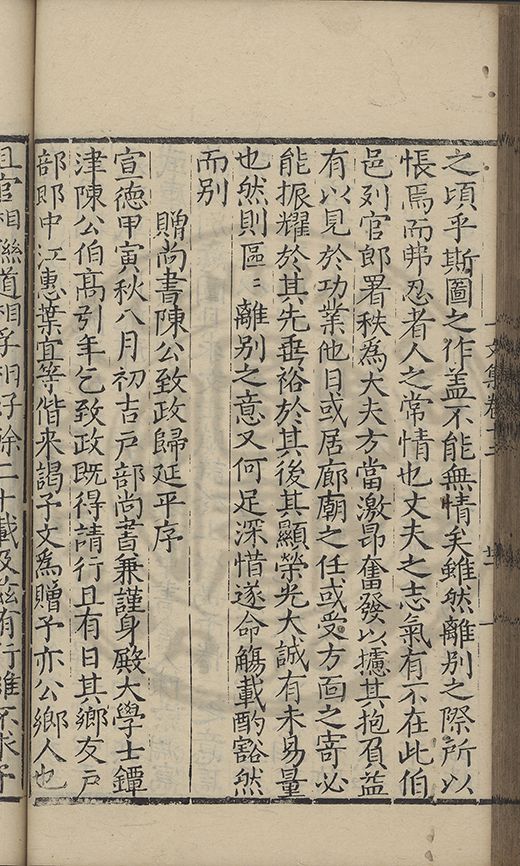 之頃乎斯圖之作蓋不能無情矣雖然離別之際所以
悵焉而弗忍者人之常情也丈夫之志氣有不在此伯
邑列官郎署秩為大夫方當激昂奮發以攄其抱負益
有以見於功業他日或居廊廟之任或受方面之寄必
能振耀於其先垂裕於其後其顯榮光大誠有未易量
也然則區〻離別之意又何足深惜遂命觴載酌豁然
而別
贈尚書陳公致政歸延平序
宣德甲寅秋八月初吉戶部尚書兼謹身殿大學士鐔
津陳公伯高引年乞致政既得請行且有日其鄉友戶
部郎中江惠葉宜等偕來謁予文為贈予亦公鄉人也
且官相聯道相孚相好餘二十載及茲有行雖不求予
文集卷十二